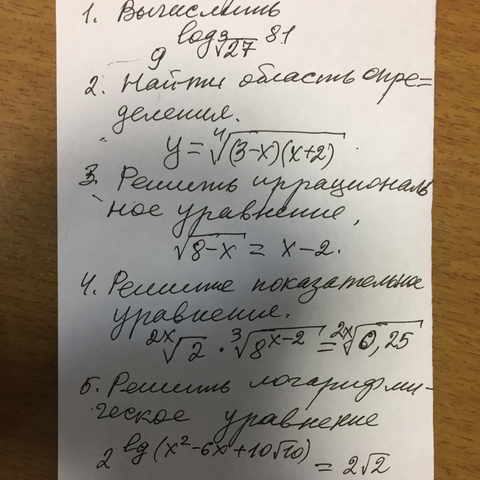 1. Вычислить
9 log ∛27 81
2. Найти область опре-
деления.
y = ⁴√(3-x)(x+2)
3. Решить иррациональ
ное уравнение,
√8-x = x-2.
4. Решите показательное
уравнение.
²ˣ√2 · ³√8^(x-2) = ²ˣ√0,25
5. Решить логарифми-
ческое уравнение
2^lg(x²-6x+10√10) = 2√2